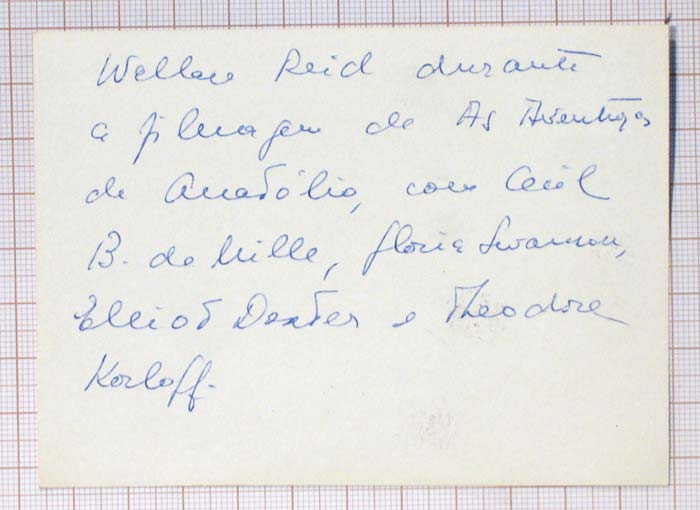 Wallace Reid durante
a filmagem de As Aventuras
de Anatólio, com Cecil
B. de Mille, Gloria Swanson,
Elliot Dexter e Theodore
Korloff.